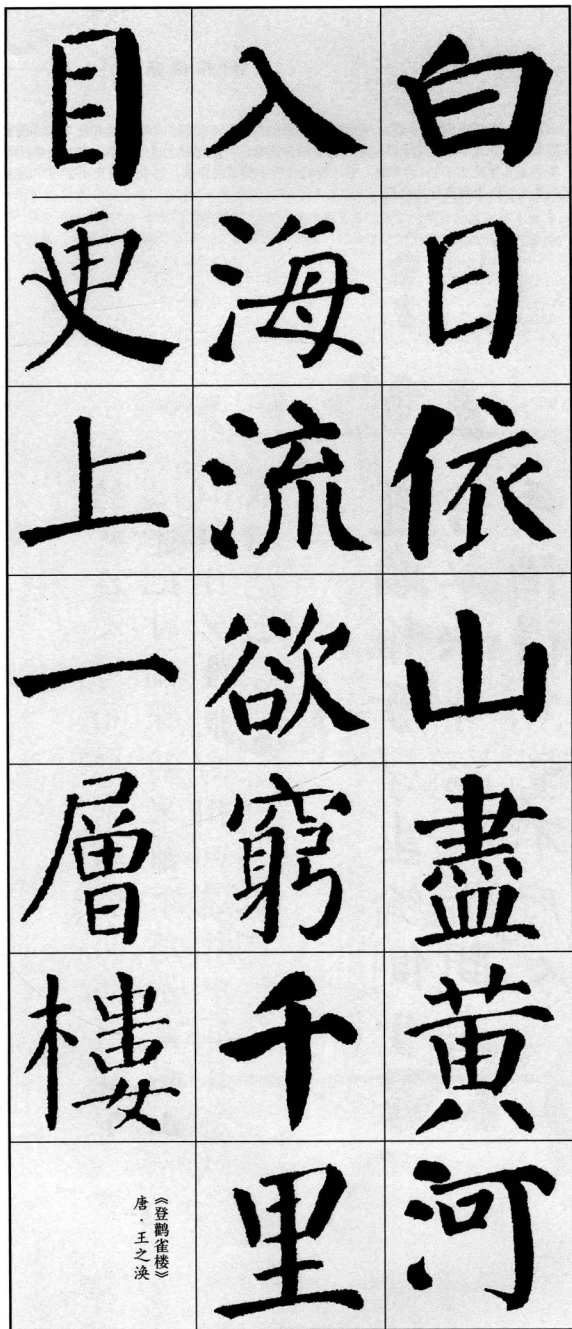 白日依山盡黄河
入海流欲窮千里
目更上一層樓
《登鸛雀楼》
唐·王之涣